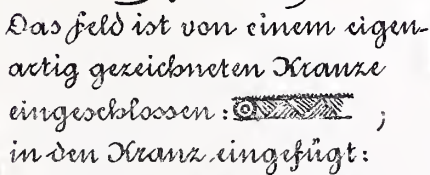 Das Feld ist von einem eigen-
artig gezeichneten Kranze
eingeschlossen : ;
in den Kranz eingefügt: